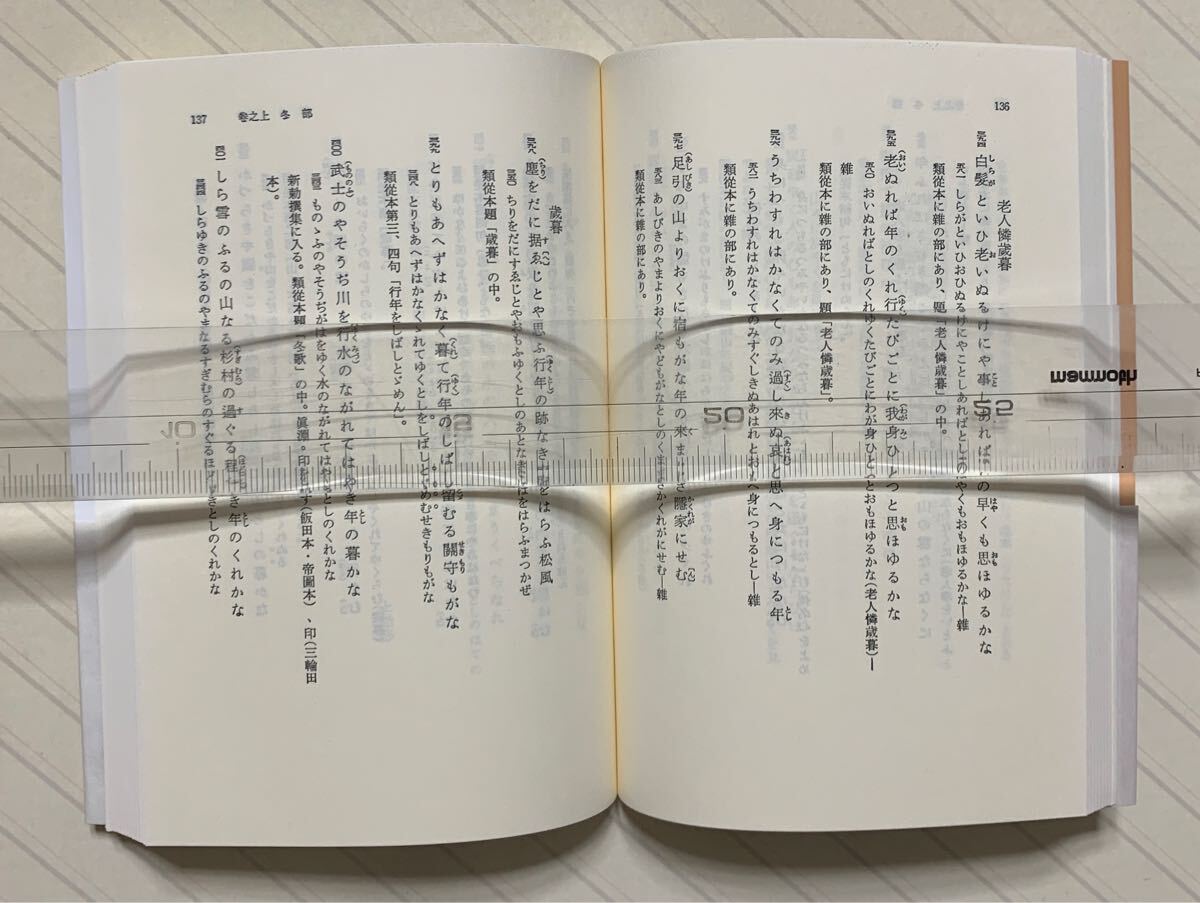 136
老人憐歳暮
白髪といひ老いぬるけにや事しあればの早くも思ほゆるかな
しらがといひおひぬるけにやことしあればとしのはやくもおもほゆるかな―雜
類從本に雜の部にあり、題「老人憐歳暮」の中。
老ぬれば年のくれ行たびごとに我身ひとつと思ほゆるかな
おいぬればとしのくれゆくたびごとにわが身ひとつとおもほゆるかな(老人憐歳暮)―
雜
類從本に雜の部にあり、題「老人憐歳暮」。
うちわすれはかなくてのみ過し來ぬ哀と思へ身につもる年
うちわすれはかなくてのみすぐしきぬあはれとおもへ身につもるとし―雜
類從本に雜の部にあり。
足引の山よりおくに宿もがな年の來まじき隱家にせむ
あしびきのやまよりおくにやどもがなとしのくまじきかくれがにせむ―雜
類從本に雜の部にあり。
137 卷之上 冬部
歳暮
塵をだに据ゑじとや思ふ行年の跡なき庭をはらふ松風
ちりをだにすゑじとやおもふゆくとしのあとなきにはをはらふまつかぜ
類從本題「歳暮」の中。
とりもあへずはかなく暮て行年のしばし留むる關守もがな
とりもあへずはかなくゝれてゆくとしをしばしとゞめむせきもりもがな
類從本第三、四句「行年をしばしとゞめん」。
武士のやそうぢ川を行水のながれてはやき年の暮かな
ものゝふのやそうぢがはをゆく水のながれてはやきとしのくれかな
新勅撰集に入る。類從本題「冬歌」の中。眞淵。印を附す(飯田本・帝圖本)、印(三輪田
本)。
しら雪のふるの山なる杉村の過ぐる程なき年のくれかな
しらゆきのふるのやまなるすぎむらのすぐるほどなきとしのくれかな
mammoth
10
50
55